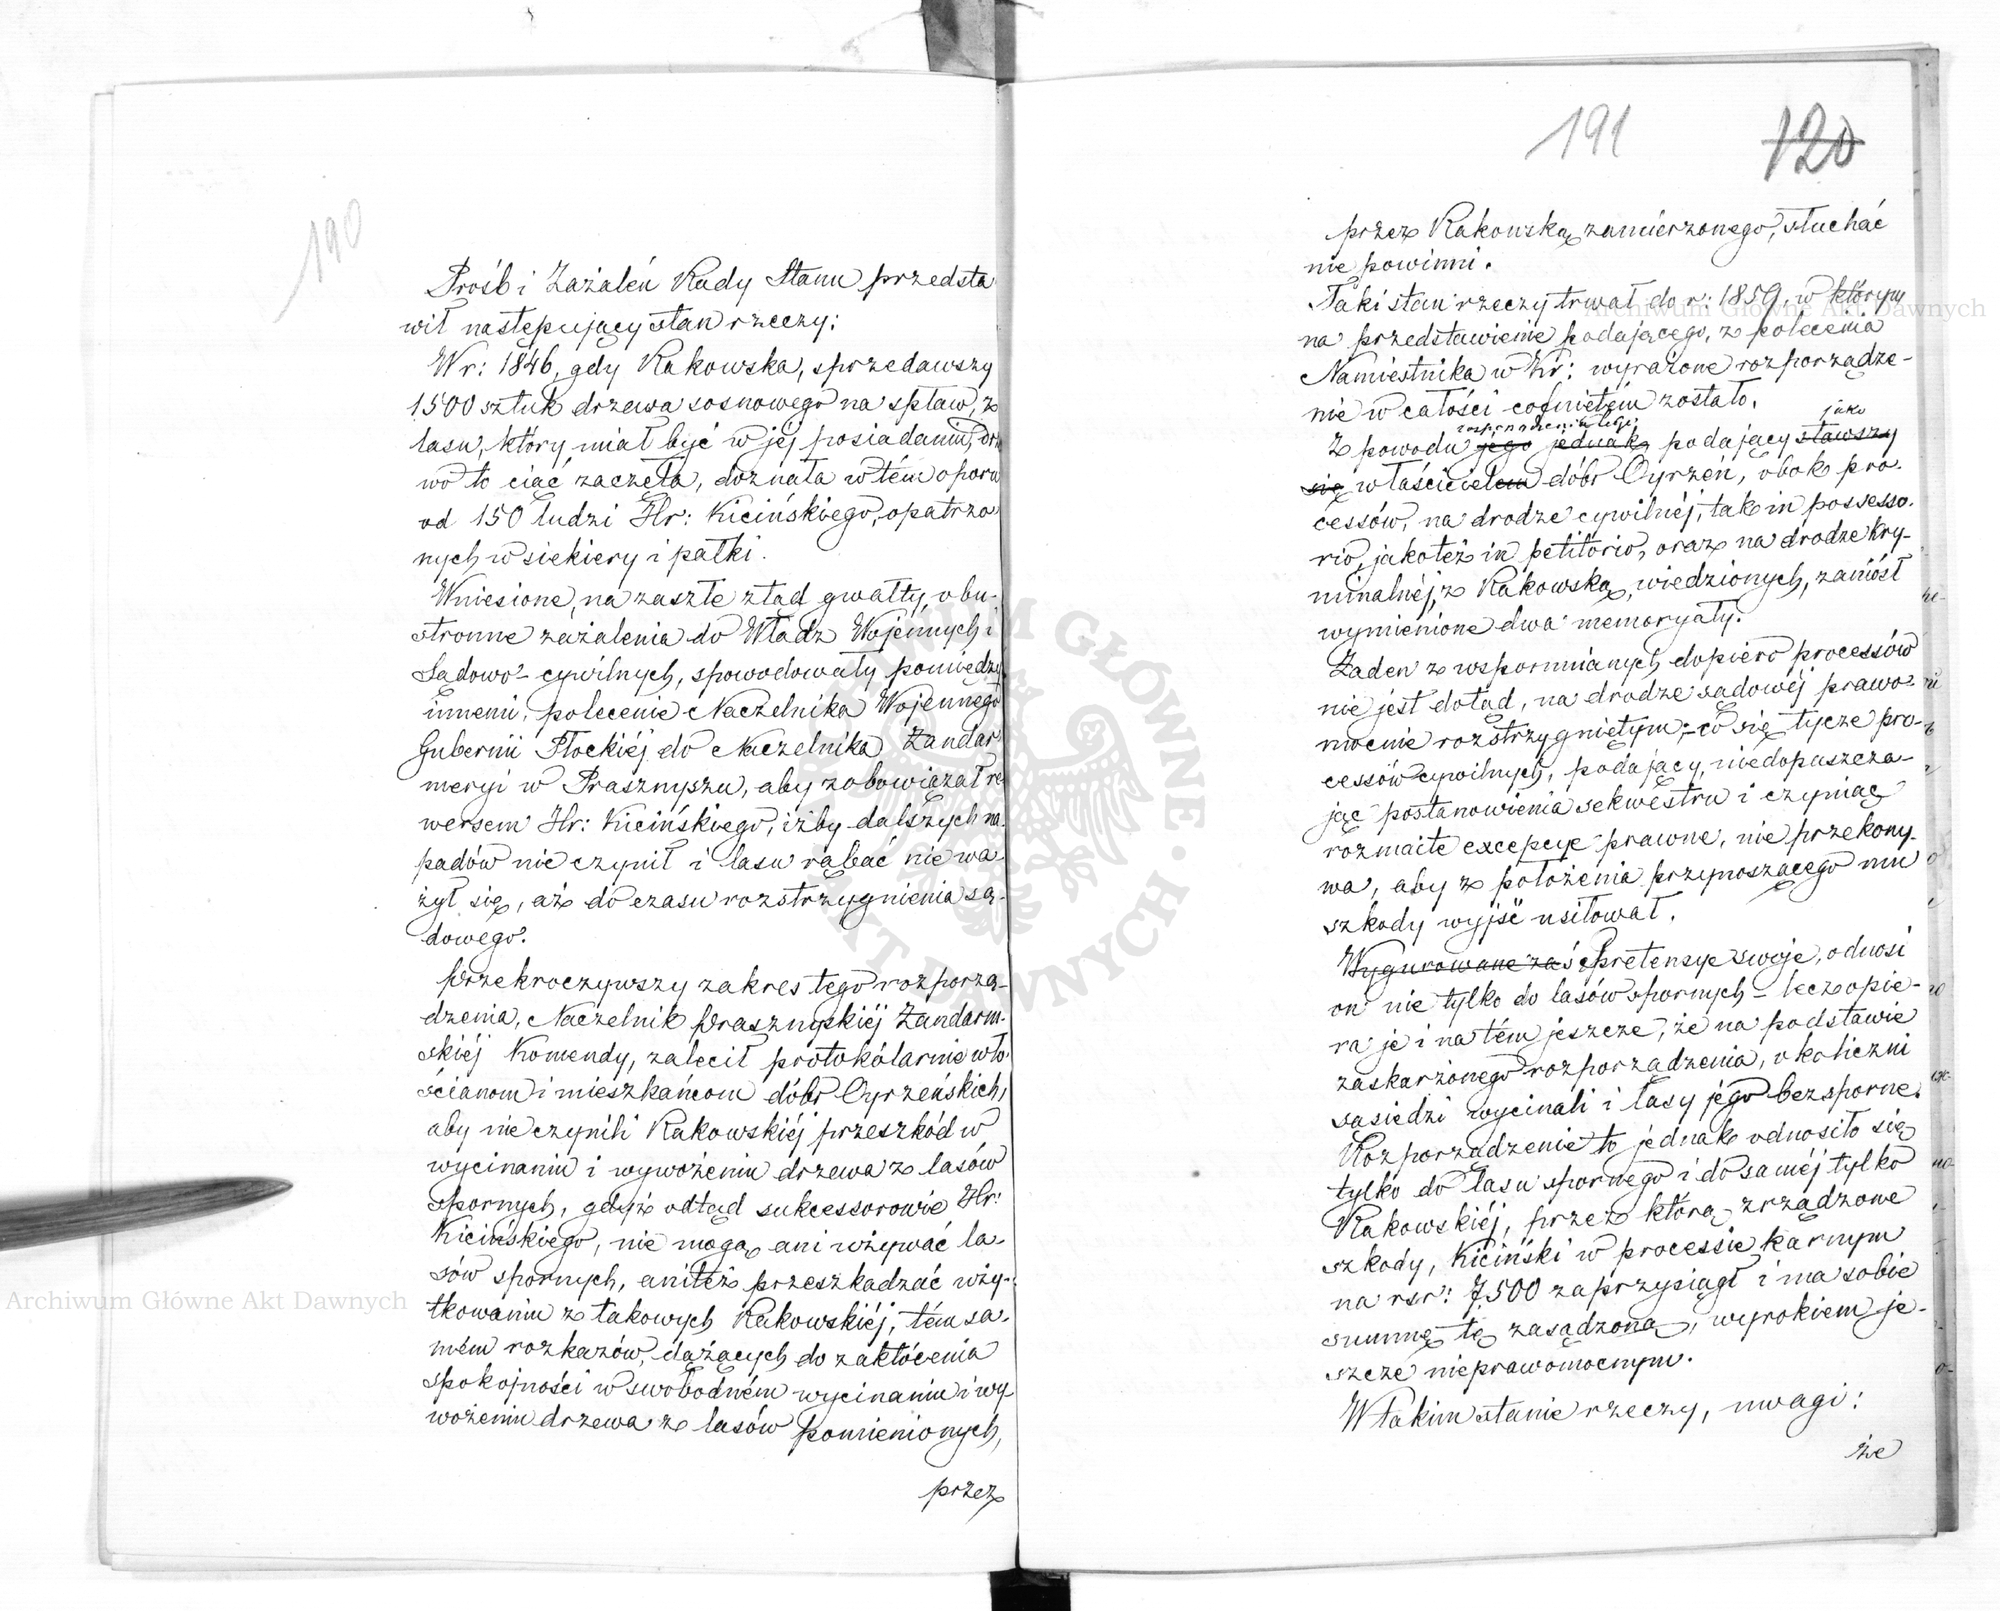 190
Próśb i Zażaleń Rady Stanu przedsta
wił następujący stan rzeczy:
W r: 1846, gdy Rakowska, sprzedawszy
1500 sztuk drzewa sosnowego na spław, z
lasu, który miał być w jéj posiadaniu, drze
wo to ciąć zaczęła, doznała w tém oporu
od 150 ludzi Hr: Kicińskiego, opatrzo
nych w siekiery i pałki.
Wniesione, na zaszłe ztąd gwałty, obu-
stronne zażalenia do Władz Wojennych i
Sądowo-cywilnych, spowodowały pomiędzy
innemi, polecenie Naczelnika Wojennego
Gubernii Płockiéj do Naczelnika Żandar
meryi w Prasznyszu, aby zobowiązał re
wersem Hr: Kicińskiego, iżby dalszych na-
padów nie czynił i lasu rąbać nie wa
żył się, aż do czasu rozstrzygnienia są-
dowego.
Przekroczywszy zakres tego rozporzą-
dzenia, Naczelnik Prasznyskiéj Żandarm-
skiéj Komendy, zalecił protokólarnie wło
ścianom i mieszkańcom dóbr Cyrzeńskich,
aby nie czynili Rakowskiéj przeszkód w
wycinaniu i wywożeniu drzewa z lasów
spornych, gdyż odtąd sukcessorowie Hr:
Kicińskiego, nie mogą ani używać la-
sów spornych, aniteż przeszkadzać uży-
tkowaniu z takowych Rakowskiéj, tém sa-
mém rozkazów, dążących do zakłócenia
spokojności w swobodném wycinaniu i wy-
wożeniu drzewa z lasów pomienionych,
przez
191 120
przez Rakowską zamierzonego, słuchać
nie powinni.
Taki stan rzeczy trwał do r: 1859, w którym
na przedstawienie podającego, z polecenia
Namiestnika w Kr: wyrażone rozporządze-
nie w całości cofniętém zostało.
rozporządzenia tego jako
Z powodu jego jednak podający stawszy
się właścicielem dóbr Cyrzeń, obok pro-
cessów, na drodze cywilnéj, tak in possesso-
rio, jakoteż in petitorio, oraz na drodze kry-
minalnéj, z Rakowską, wiedzionych, zaniósł
wymienione dwa memoryały.
Żaden z wspomnianych dopiero processów
nie jest dotąd, na drodze sądowéj prawo-
mocnie rozstrzygniętym; co się tycze pro-
cessów cywilnych, podający, niedopuszcza-
jąc postanowienia sekwestru i czyniąc
rozmaite excepcye prawne, nie przekony-
wa, aby z położenia przynoszącego mu
szkody wyjść usiłował.
Wygurowane zaś Pretensye swoje, odnosi
on nie tylko do lasów spornych – lecz opie-
ra je i na tém jeszcze, że na podstawie
zaskarżonego rozporządzenia, okoliczni
sąsiedzi wycinali i lasy jego bezsporne.
Rozporządzenie to jednak odnosiło się
tylko do lasu spornego i do saméj tylko
Rakowskiéj, przez którą zrządzone
szkody, Kiciński w processie karnym
na rsr: 7,500 zaprzysiągł i ma sobie
summę tę zasądzoną, wyrokiem je-
szcze nieprawomocnym.
W takim stanie rzeczy, uwagi:
że
Archiwum Główne Akt Dawnych
Archiwum Główne Akt Dawnych
ARCHIWUM GŁÓWNE AKT DAWNYCH